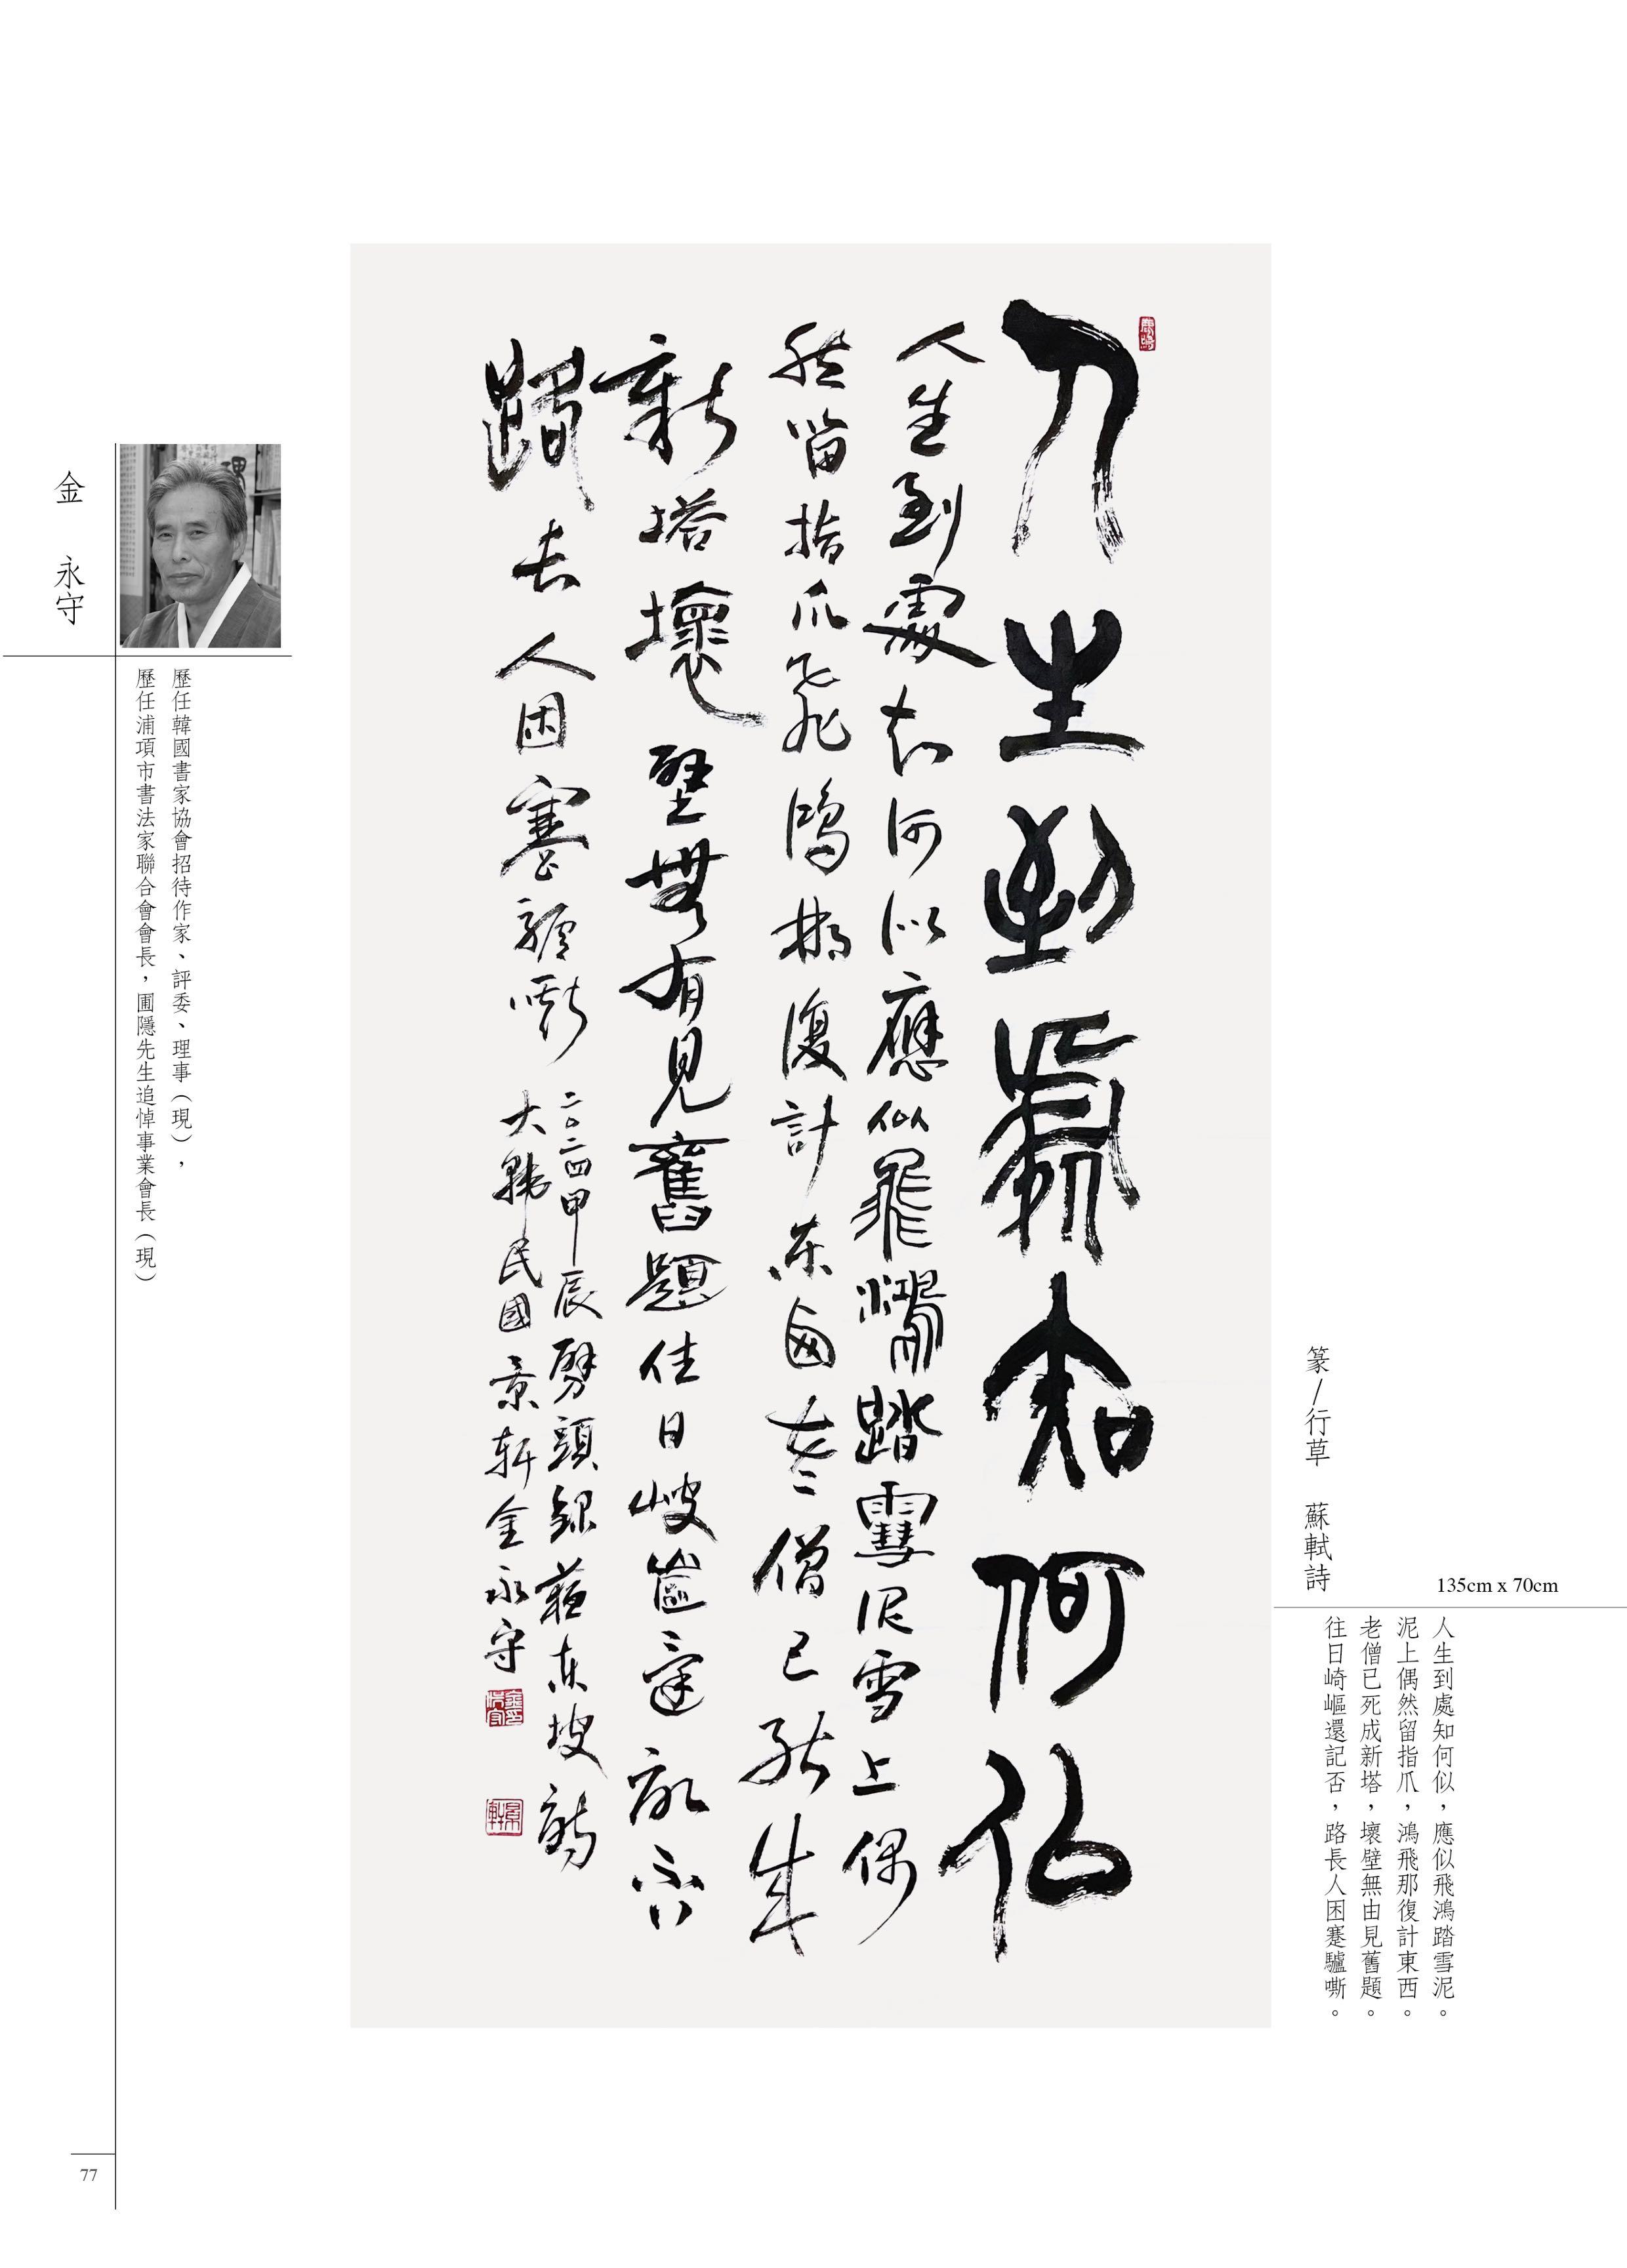 人生到處知何似
人生到處知何似應似飛鴻踏雪泥雪上偶
然留指爪飛鴻那復計東西老僧已死成
新塔壞壁無有見舊題往日崎嶇還記否
路長人困蹇驢嘶
二〇二四甲辰劈頭錄蘇東坡詩
大韓民國景軒金永守
篆/行草 蘇軾詩
135cm x 70cm
人生到處知何似，應似飛鴻踏雪泥。
泥上偶然留指爪，鴻飛那復計東西。
老僧已死成新塔，壞壁無由見舊題。
往日崎嶇還記否，路長人困蹇驢嘶。
金 永守
歷任韓國書家協會招待作家、評委、理事（現），
歷任浦項市書法家聯合會會長，圃隱先生追悼事業會長（現）
77